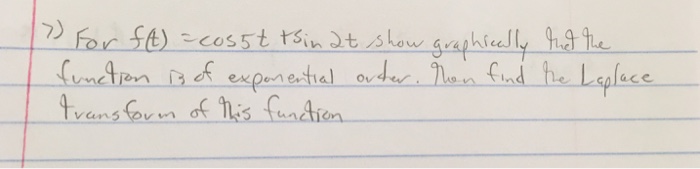 7) For f(t) = cos5t + sin 2t show graphically that the
function is of exponential order. Then find the Laplace
transform of this function